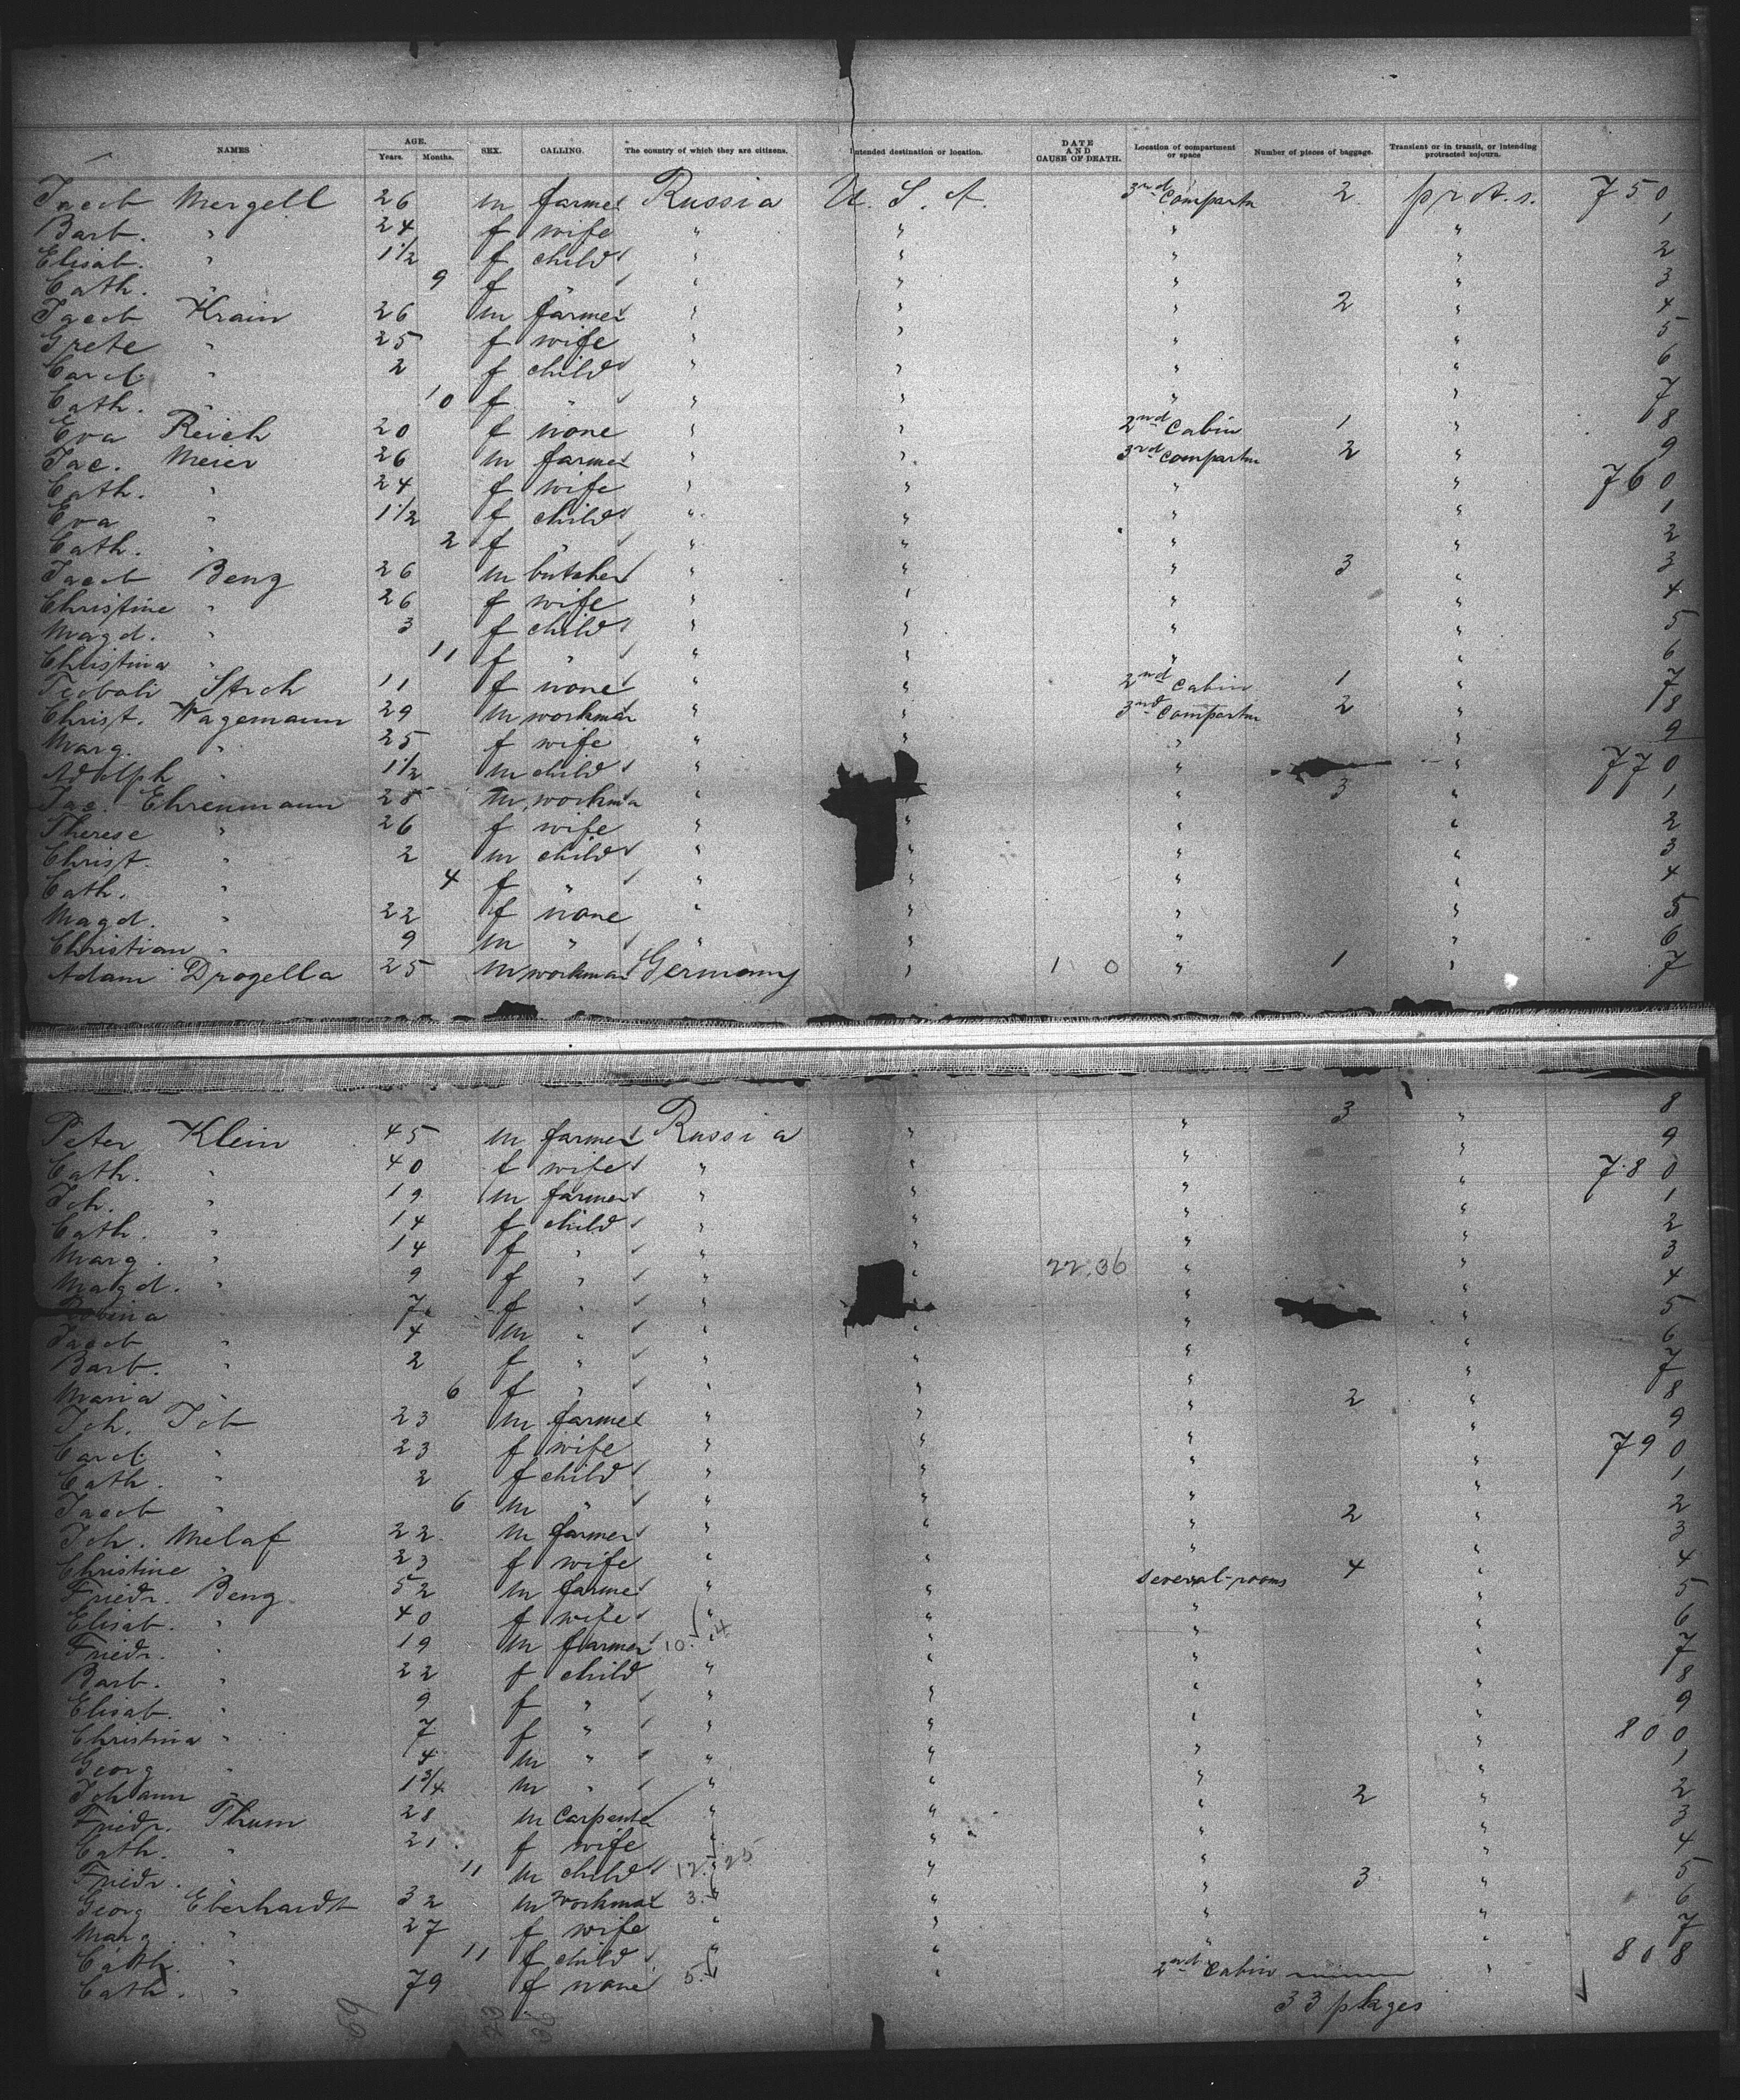 NAMES AGE. Years. Months. SEX. CALLING. The country of which they are citizens. Intended destination or location. DATE AND CAUSE OF DEATH. Location of compartment or space Number of pieces of baggage. Transient or in transit, or intending protracted sojourn.
Jacob Mergell 26 m farmer Russia U. S. A. 3rd Compartm 2 prot. s. 750
Barb. " 24 f wife " " " " 1
Elisab. " 1 1/2 f child " " " " 2
Cath. " 9 f " " " " " 3
Jacob Krain 26 m farmer " " " 2 " 4
Grete " 25 f wife " " " " 5
Carol. " 2 f child " " " " 6
Cath. " 10 f " " " " " 7
Eva Reich 20 f none " " 2nd Cabin 1 " 8
Jac. Meier 26 m farmer " " 3rd Compartm 2 " 9
Cath. " 24 f wife " " " " 760
Eva " 1 1/2 f child " " " " 1
Cath. " 2 f " " " " " 2
Jacob Beng 26 m butcher " " " 3 " 3
Christine " 26 f wife " " " " 4
Magd. " 3 f child " " " " 5
Christina " 11 f " " " " " 6
11 f none " " 2nd Cabin 1 " 7
Christ. Wagemann 29 m workman " " 3rd Compartm 2 " 8
Marg. " 25 f wife " " " " 9
Adolph " 1 1/2 m child " " " 770
Jac. Ehrenmann 28 m workma " " 3 " 1
Therese " 26 f wife " " " " 2
Christ. " 2 m child " " " " 3
Cath. " 4 f " " " " " 4
Magd. " 22 f none " " " " 5
Christian " 9 m " " " " " 6
Adam Drogella 25 m workman Germany " 1 0 " 1 " 7
Peter Klein 45 m farmer Russia " " 3 " 8
Cath. " 40 f wife " " " " 9
Joh. " 19 m farmer " " " " 780
Cath. " 14 f child " " " " 1
Marg. " 14 f " " " " " 2
Magd. " 9 f " " " 22.36 " " 3
7 f " " " " " 4
Jacob " 4 m " " " " " 5
Barb. " 2 f " " " " " 6
Maria " 6 f " " " " " 7
Joh. Job 23 m farmer " " " 2 " 8
Carol. " 23 f wife " " " " 9
Cath. " 2 f child " " " " 790
Jacob " 6 m " " " " " 1
Joh. Melaf 22 m farmer " " " 2 " 2
Christine " 23 f wife " " " " 3
Friedr. Beng 52 m farmer " " several-rooms 4 " 4
Elisab. " 40 f wife " " " " 5
Friedr. " 19 m farmer 10. " 4 " " " 6
Barb. " 22 f child " " " " 7
Elisab. " 9 f " " " " " 8
Christina " 7 f " " " " " 9
Georg " 4 m " " " " " 800
Johann " 1 3/4 m " " " " " 1
Friedr. Thum 28 m Carpenter " " " 2 " 2
Cath. " 21 f wife " " " " 3
Friedr. " 11 m child 12. " 25 " " " 4
Georg Eberhardt 32 m workman 3. " " " 3 " 5
Marg. " 27 f wife " " " " 6
Cath. " 11 f child " " " " 7
Cath. " 79 f none 5. " 2nd Cabin " 808
33 pkges